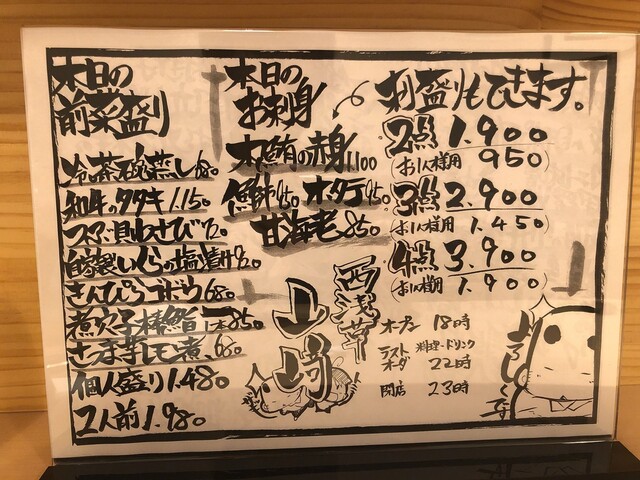 本日の
前菜盛り
冷茶碗蒸し 680
和牛のタタキ 1.150
つぶ貝わさび 720
自家製いくらの塩漬け 920
きんぴらゴボウ 680
煮穴子棒鮨 1本 850
さつま芋レモン煮 680
個人盛り 1.480
2人前 1.980
本日の
お刺身
本鮪の赤身 1100
950 ホタテ 950
甘海老 850
刺盛りもできます。
2点 1.900
(お1人様用 950)
3点 2.900
(お1人様用 1.450)
4点 3.900
(お1人様用 1.900)
西浅草
山崎
オープン 18時
ラストオーダ 料理・ドリンク 22時
閉店 23時
よろしくです